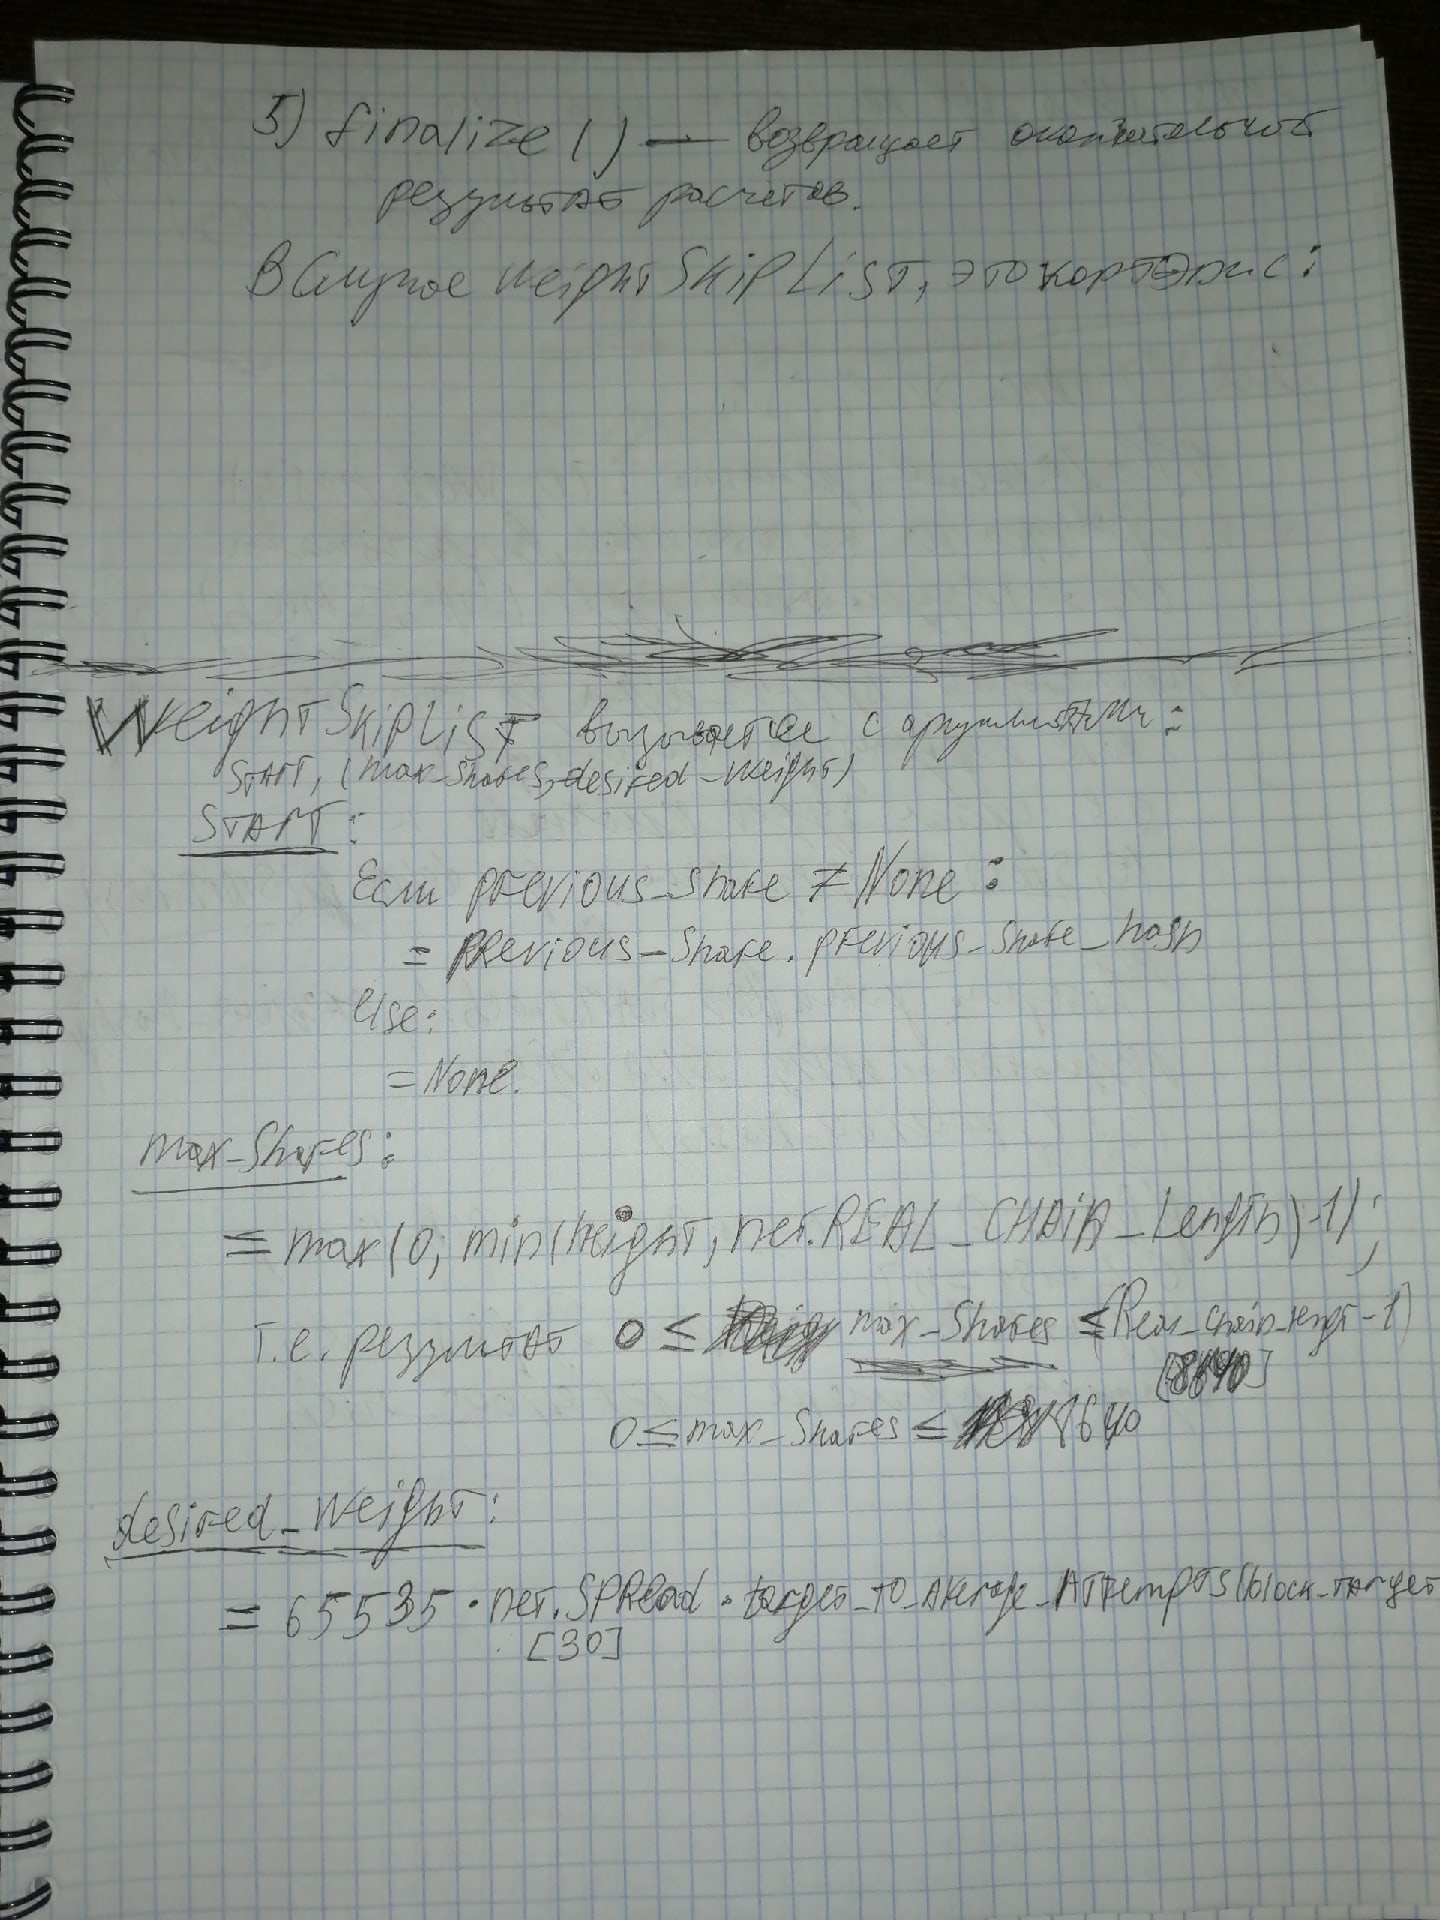 5) finalize() — возвращает окончательный
результат расчетов.
В случае WeightSkipList, это кортэж с:
WeightSkipList вызывается с аргументами:
START, (max_shares, desired_weight)
START:
Если previous_share ≠ None:
= previous_share.previous_share_hash
Else:
= None.
max_shares:
= max(0, min(height, net.REAL_CHAIN_Length)-1);
Т.е. результат 0 ≤ max_Shares ≤ (Real_chain_lengt-1)
[8640]
0 ≤ max_Shares ≤ 8640
desired_weight:
= 65535 · net.SPRead · target_to_Average_Attempts(block_target
[30]